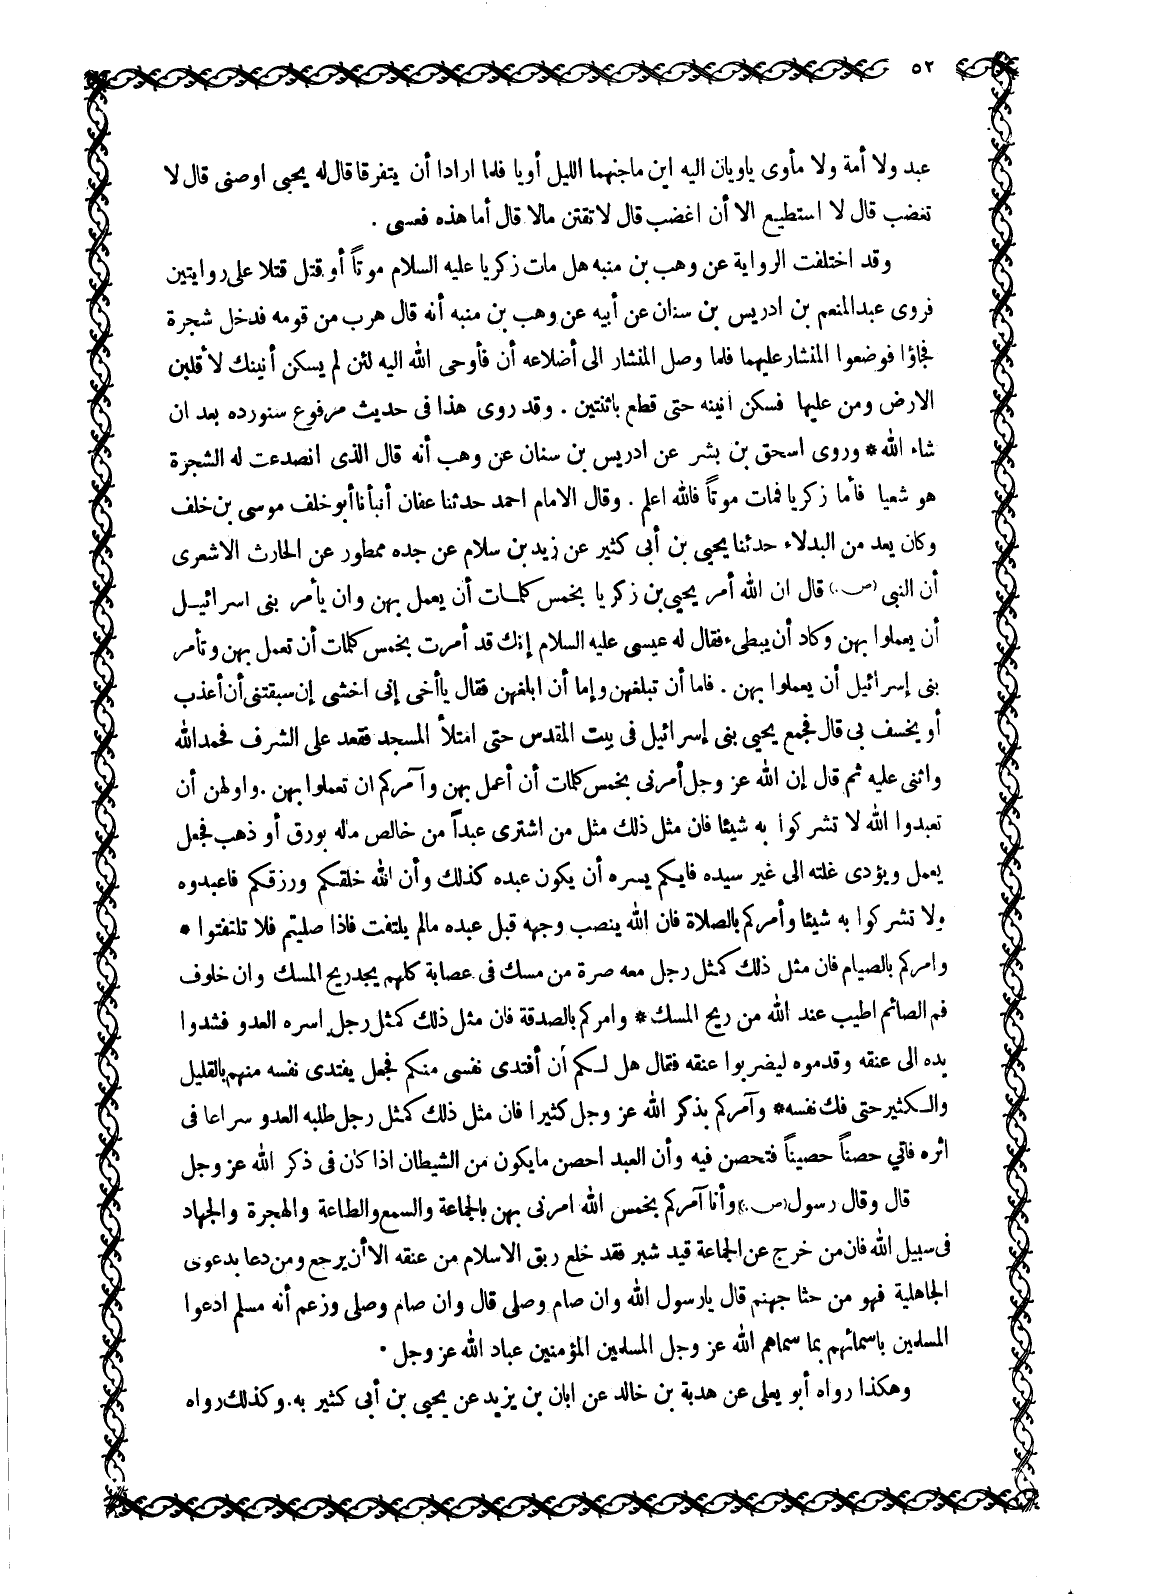 ٥٢
عبد ولا أمة ولا مأوى ياويان اليه اين ماجنهما الليل أويا فلما ارادا أن يتفرقا قال له يحيى اوصنى قال لا
تغضب قال لا استطيع الا أن اغضب قال لا تقتن مالا قال أما هذه فعسى .
وقد اختلفت الرواية عن وهب بن منبه هل مات زكريا عليه السلام موتاً أو قتل قتلا على روايتين
فروى عبد المنعم بن ادريس بن سنان عن أبيه عن وهب بن منبه أنه قال هرب من قومه فدخل شجرة
فجاؤا فوضعوا المنشار عليهما فلما وصل المنشار الى أضلاعه أن فأوحى الله اليه لئن لم يسكن أنينك لأقلبن
الارض ومن عليها فسكن انينه حتى قطع باثنتين . وقد روى هذا فى حديث مرفوع سنورده بعد ان
شاء الله * وروى اسحق بن بشر عن ادريس بن سنان عن وهب أنه قال الذى انصدعت له الشجرة
هو شعيا فأما زكريا فمات موتاً فالله اعلم . وقال الامام احمد حدثنا عفان أنبأنا أبو خلف موسى بن خلف
وكان يعد من البدلاء حدثنا يحيى بن أبي كثير عن زيد بن سلام عن جده ممطور عن الحارث الاشعرى
أن النبي (ص.) قال ان الله أمر يحيى بن زكريا بخمس كلمات أن يعمل بهن وان يأمر بنى اسرائيل
أن يعملوا بهن وكاد أن يبطىء فقال له عيسى عليه السلام إنك قد أمرت بخمس كلمات أن تعمل بهن وتأمر
بنى إسرائيل أن يعملوا بهن . فاما أن تبلغهن وإما أن ابلغهن فقال ياأخى إنى اخشى إن سبقتنى أن أعذب
أو يخسف بي قال فجمع يحيى بنى إسرائيل فى بيت المقدس حتى امتلأ المسجد فقعد على الشرف فحمد الله
واثنى عليه ثم قال إن الله عز وجل أمرنى بخمس كلمات أن أعمل بهن وآمركم ان تعملوا بهن . واولهن أن
تعبدوا الله لا تشركوا به شيئا فان مثل ذلك مثل من اشترى عبداً من خالص ماله بورق أو ذهب فجعل
يعمل ويؤدى غلته الى غير سيده فايكم يسره أن يكون عبده كذلك وأن الله خلقكم ورزقكم فاعبدوه
ولا تشركوا به شيئا وأمركم بالصلاة فان الله ينصب وجهه قبل عبده مالم يلتفت فاذا صليتم فلا تلتفتوا *
وامركم بالصيام فان مثل ذلك كمثل رجل معه صرة من مسك فى عصابة كلهم يجد ريح المسك وان خلوف
فم الصائم اطيب عند الله من ريح المسك * وامركم بالصدقة فان مثل ذلك كمثل رجل اسره العدو فشدوا
يده الى عنقه وقدموه ليضربوا عنقه فقال هل لكم أن أفتدى نفسى منكم فجعل يفتدى نفسه منهم بالقليل
والكثير حتى فك نفسه * وآمركم بذكر الله عز وجل كثيرا فان مثل ذلك كمثل رجل طلبه العدو سراعا فى
اثره فاتي حصناً حصيناً فتحصن فيه وأن العبد احصن مايكون من الشيطان اذا كان فى ذكر الله عز وجل
قال وقال رسول (ص.) وأنا آمركم بخمس الله امرنى بهن بالجماعة والسمع والطاعة والهجرة والجهاد
فى سبيل الله فان من خرج عن الجماعة قيد شبر فقد خلع ربق الاسلام من عنقه الا أن يرجع ومن دعا بدعوى
الجاهلية فهو من حثا جهنم قال يارسول الله وان صام وصلى قال وان صام وصلى وزعم أنه مسلم ادعوا
المسلمين باسمائهم بما سماهم الله عز وجل المسلمين المؤمنين عباد الله عز وجل .
وهكذا رواه أبو يعلى عن هدبة بن خالد عن ابان بن يزيد عن يحيى بن أبي كثير به . وكذلك رواه